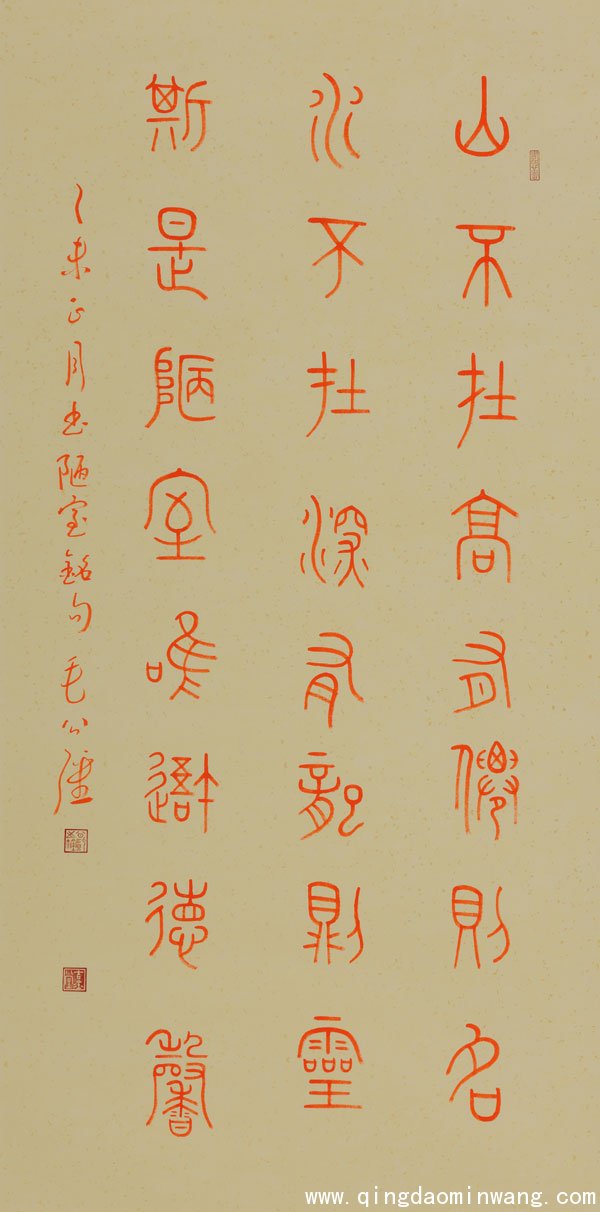 山不在高有僊則名
水不在深有龍則靈
斯是陋室唯吾德馨
乙未正月書陋室銘句 毛公
www.qingdaominwang.com